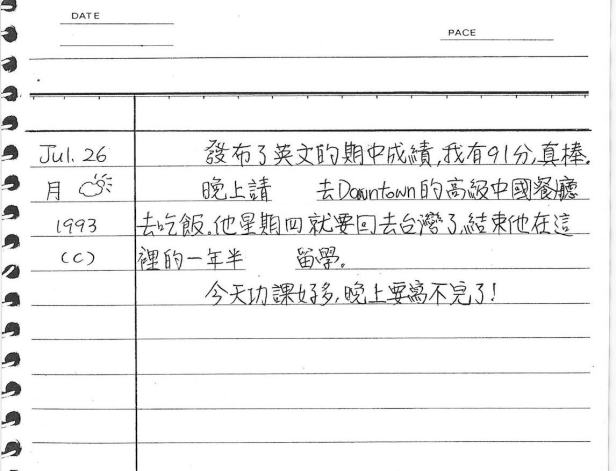 DATE
PACE
Jul. 26 發布了英文的期中成績,我有91分,真棒.
月 晚上請 去Downtown的高級中國餐廳
1993 去吃飯.他星期四就要回去台灣了,結束他在這
(C) 裡的一年半 留學。
今天功課好多,晚上要寫不完了!